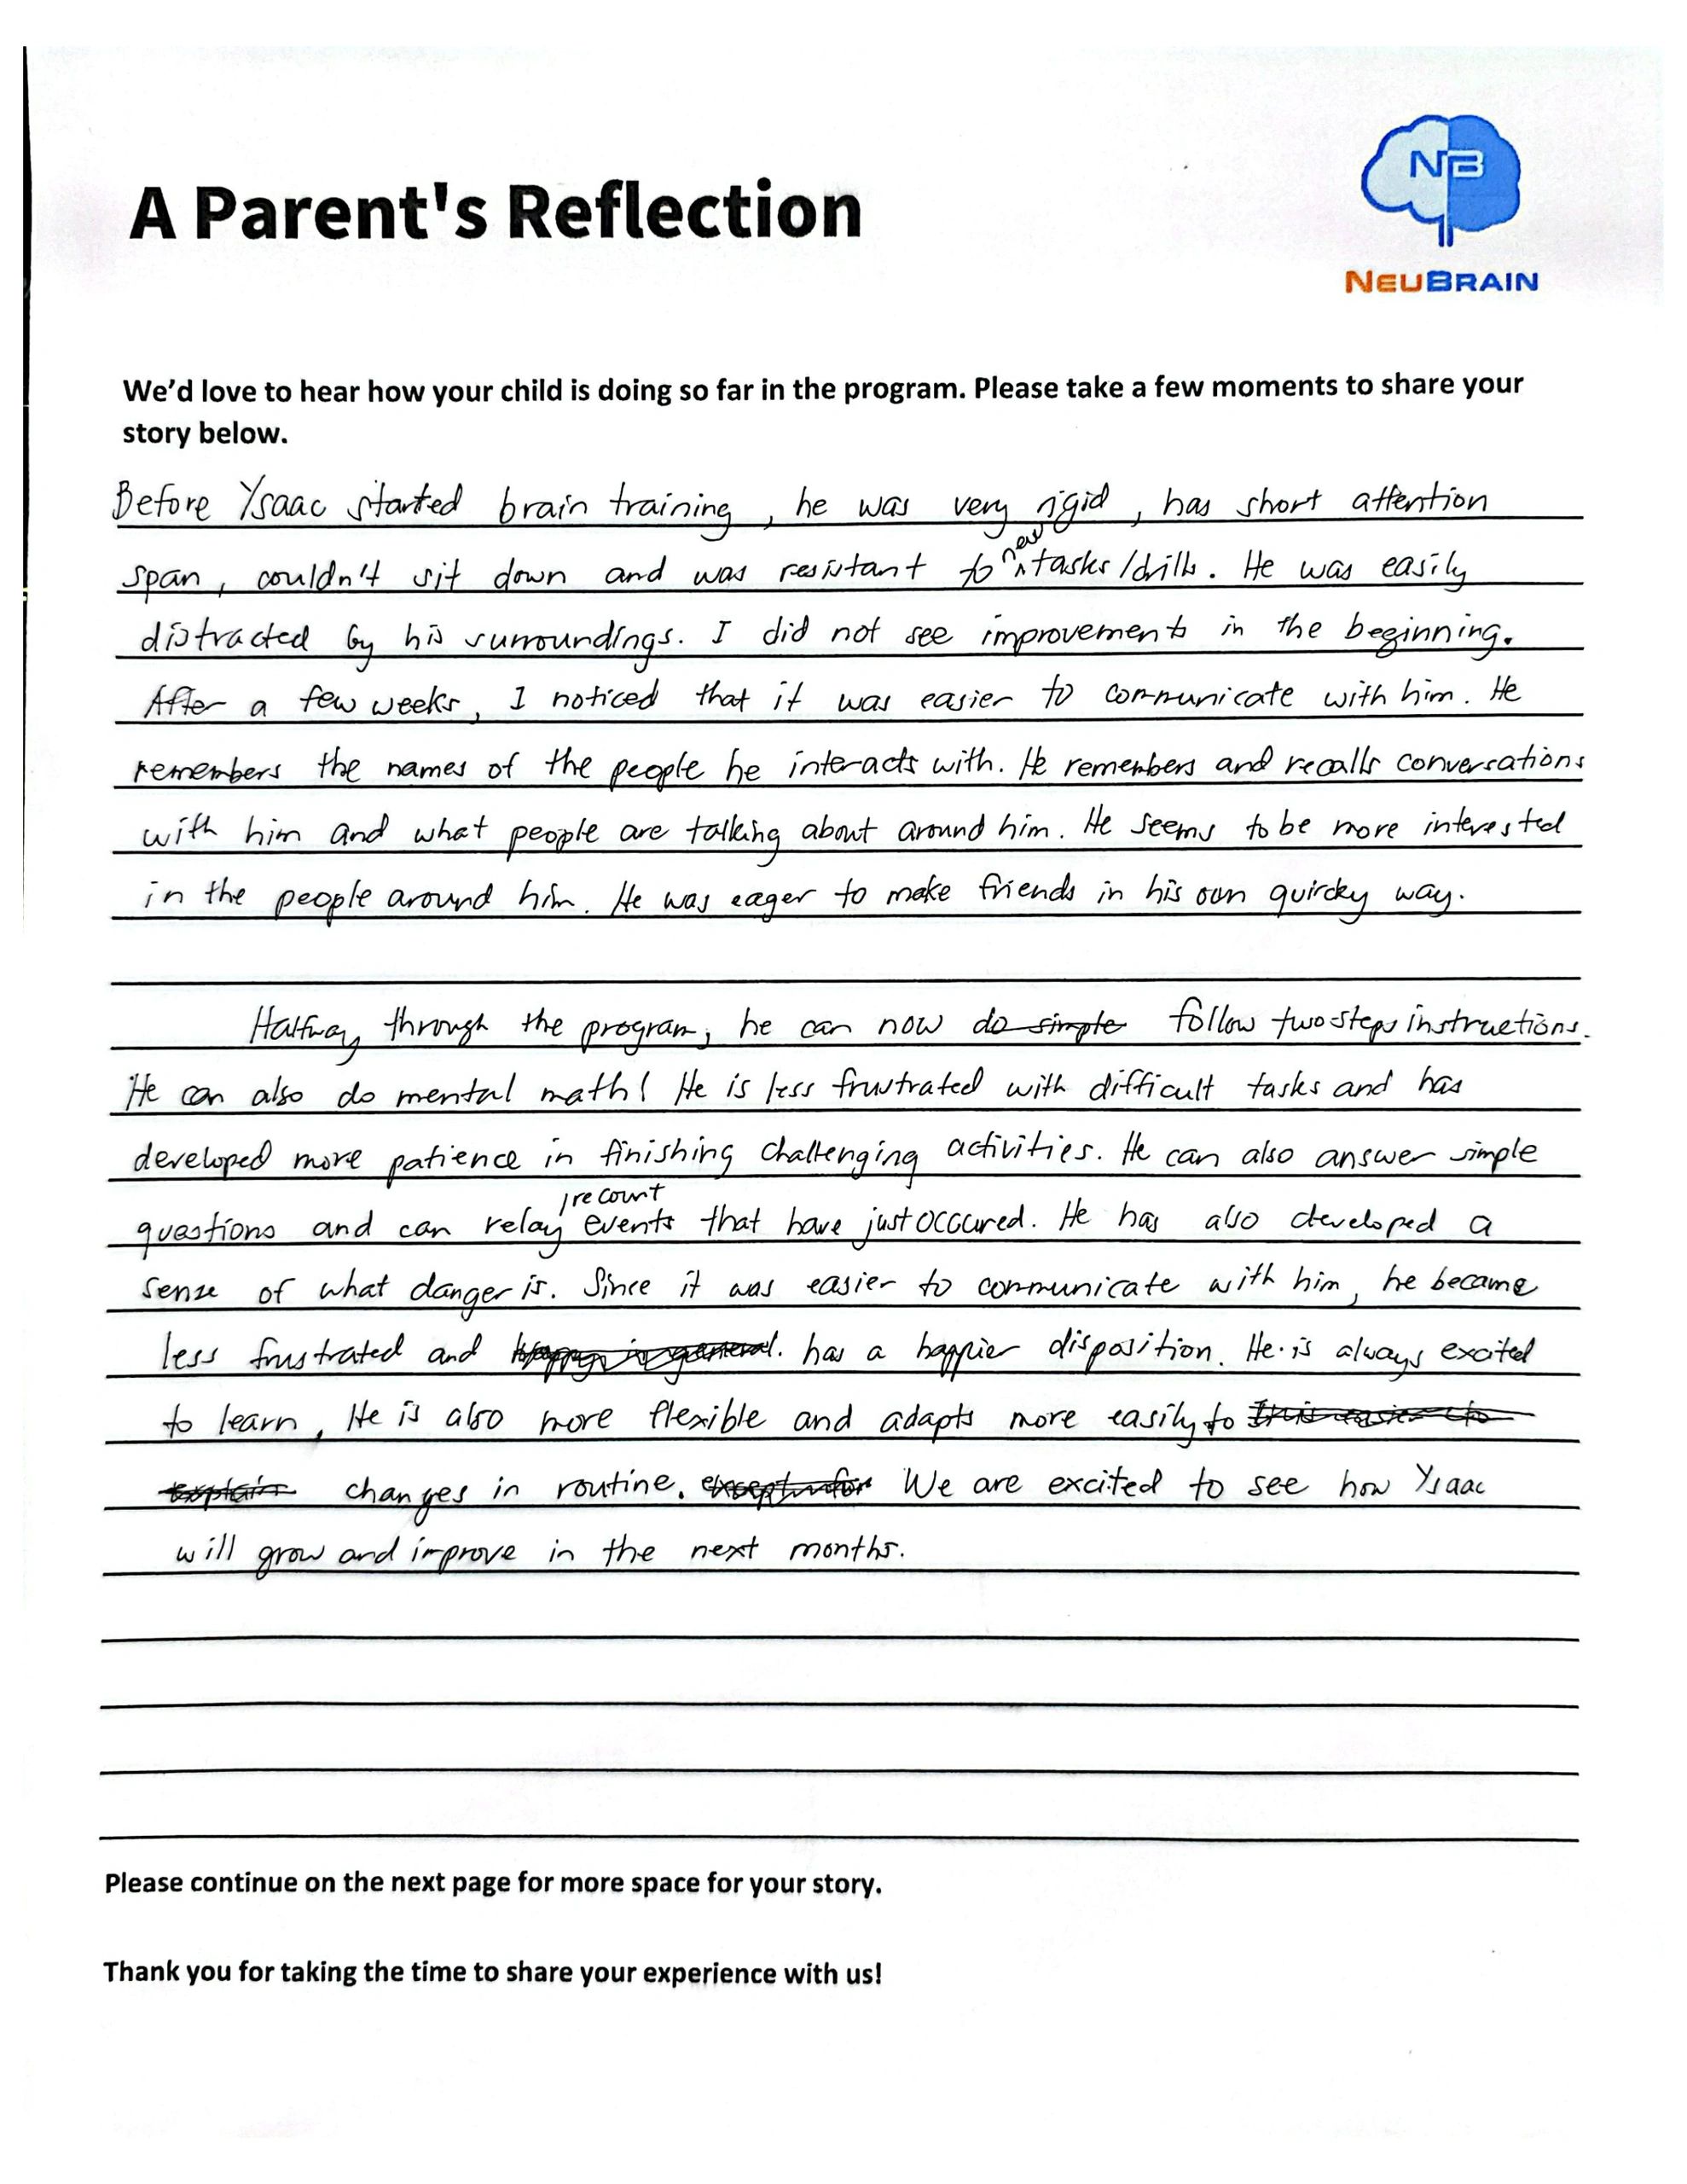 A Parent's Reflection
NB
NEUBRAIN
We'd love to hear how your child is doing so far in the program. Please take a few moments to share your
story below.
Before Ysaac started brain training, he was very rigid, has short attention
span, couldn't sit down and was resistant to new tasks/drills. He was easily
distracted by his surroundings. I did not see improvements in the beginning.
After a few weeks, I noticed that it was easier to communicate with him. He
remembers the names of the people he interacts with. He remembers and recalls conversations
with him and what people are talking about around him. He seems to be more interested
in the people around him. He was eager to make friends in his own quircky way.
Halfway through the program, he can now do simple follow two steps instructions.
He can also do mental math! He is less frustrated with difficult tasks and has
developed more patience in finishing challenging activities. He can also answer simple
questions and can relay/recount events that have just occured. He has also developed a
sense of what danger is. Since it was easier to communicate with him, he became
less frustrated and happy in general. has a happier disposition. He is always excited
to learn, He is also more flexible and adapts more easily to It is easier to
explain changes in routine. except for We are excited to see how Ysaac
will grow and improve in the next months.
Please continue on the next page for more space for your story.
Thank you for taking the time to share your experience with us!